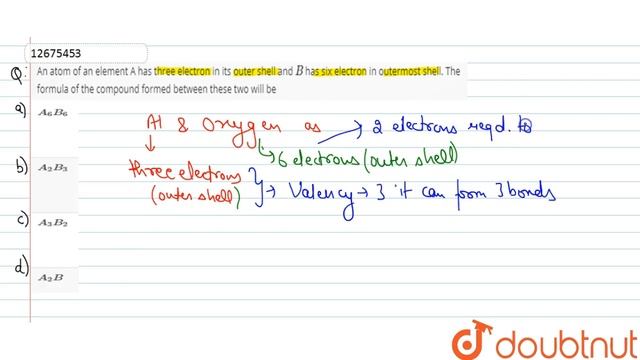 12675453
Q. An atom of an element A has three electron in its outer shell and B has six electron in outermost shell. The
formula of the compound formed between these two will be
a) A6B6
Al & Oxygen as → 2 electrons reqd. to
↓ ↳ 6 electrons (outer shell)
b) A2B3
three electrons
(outer shell) } → Valency → 3 it can form 3 bonds
c) A3B2
d) A2B
doubtnut